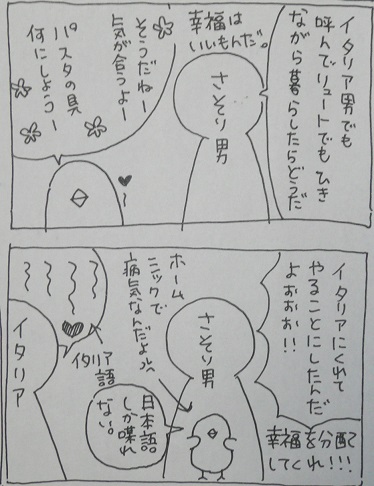 イタリア男でも
呼んでリュートでもひき
ながら暮らしたらどうだ
幸福は
いいもんだ。
さそり男
そうだねー
気が合うよー
パスタの具
何にしようー
イタリアにくれて
やることにしたんだ
よおおお!!
幸福を分配
してくれ!!!
さそり男
ホーム
ニックで
病気なんだよ
日本語
しか喋れ
ない。
イタリア
語
イタリア